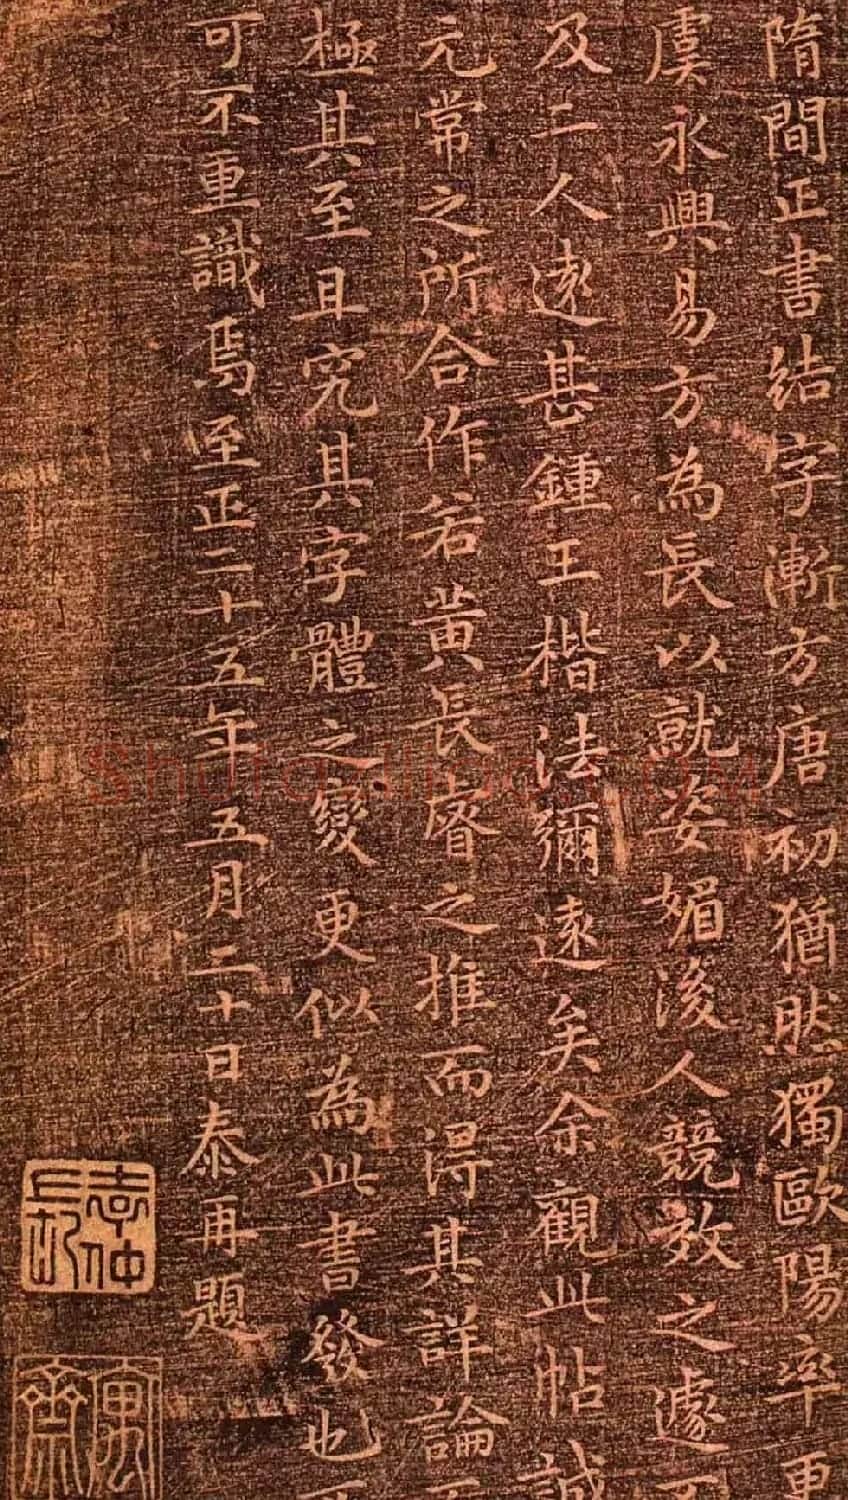 隋間正書結字漸方唐初猶然獨歐陽率更
虞永興易方為長以就姿媚後人競效之遽不
及二人遠甚鍾王楷法彌遠矣余觀此帖誠
元常之所合作若黃長睿之推而得其詳論
極其至且究其字體之變更似為此書發也
可不重識焉至正二十五年五月二十日泰再題
袁仲長印
寓齋
shufaziliao.com